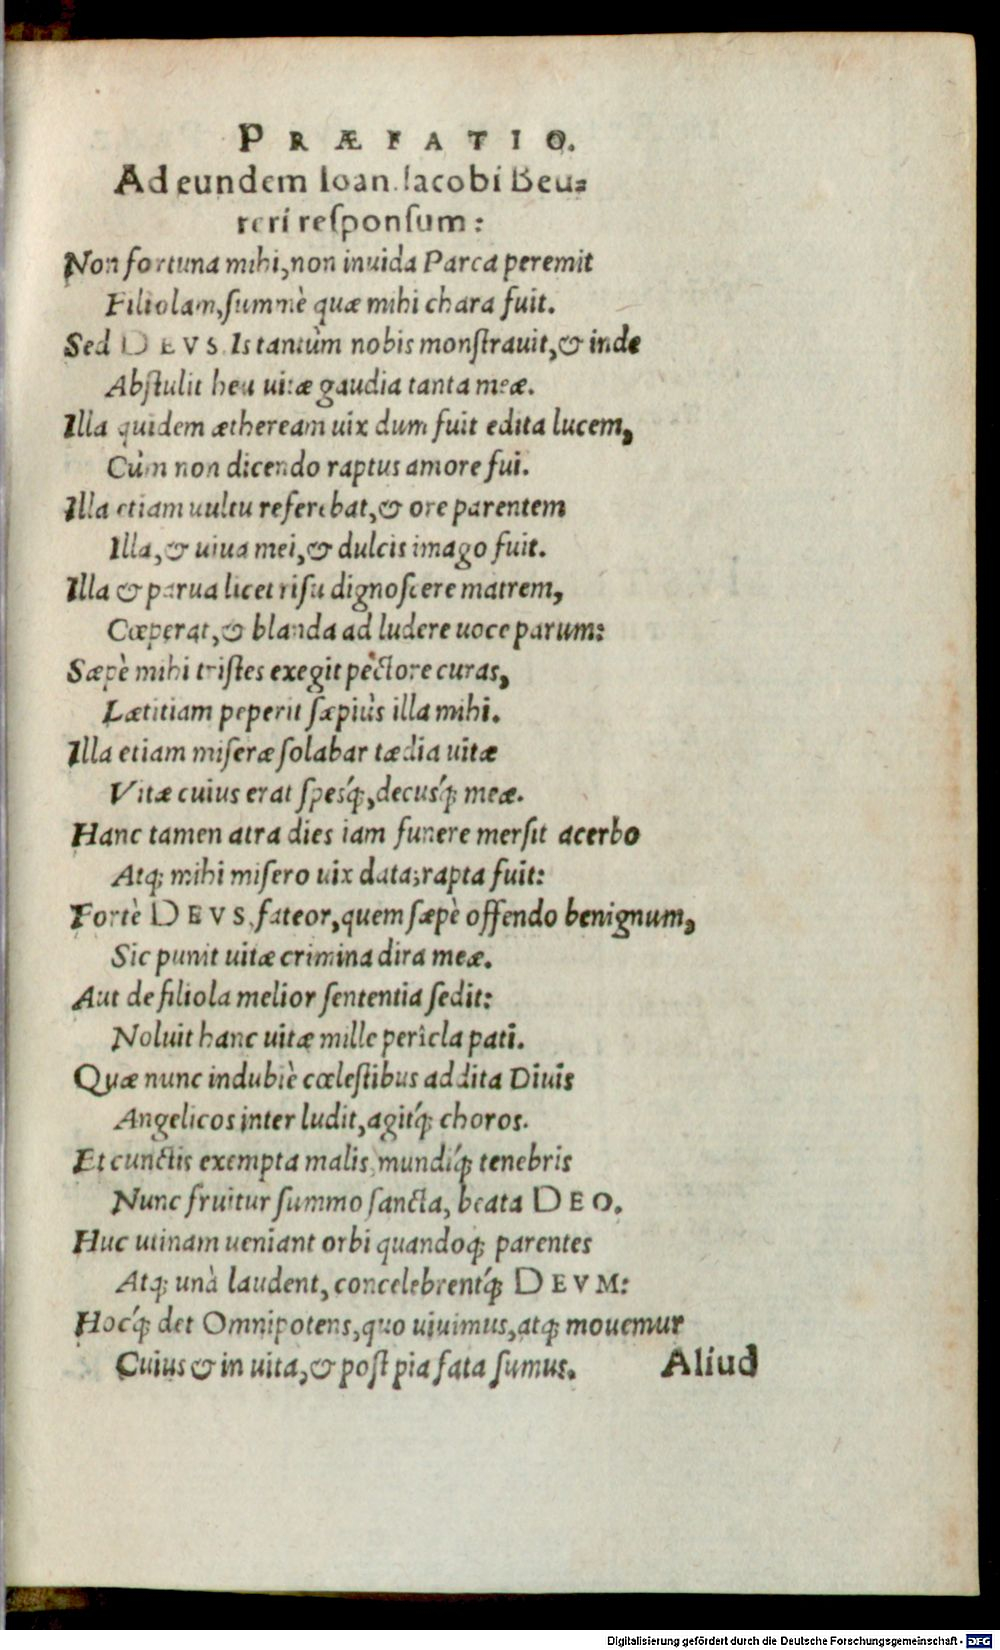 PRÆFATIO.
Ad eundem Ioan. Iacobi Beu⸗
reri responsum:
Non fortuna mihi, non inuida Parca peremit
Filiolam, summè quæ mihi chara fuit.
Sed DEVS. Is tantùm nobis monstrauit, & inde
Abstulit heu uitæ gaudia tanta meæ.
Illa quidem ætheream uix dum fuit edita lucem,
Cùm non dicendo raptus amore fui.
Illa etiam uultu referebat, & ore parentem
Illa, & uiua mei, & dulcis imago fuit.
Illa & parua licet risu dignoscere matrem,
Cœperat, & blanda ad ludere uoce parum:
Sæpè mihi tristes exegit pectore curas,
Lætitiam peperit sæpiùs illa mihi.
Illa etiam miseræ solabar tædia uitæ
Vitæ cuius erat spesq́;, decusq́; meæ.
Hanc tamen atra dies iam funere mersit acerbo
Atq; mihi misero uix data; rapta fuit:
Fortè DEVS, fateor, quem sæpè offendo benignum,
Sic punit uitæ crimina dira meæ.
Aut de filiola melior sententia sedit:
Noluit hanc uitæ mille pericla pati.
Quæ nunc indubiè cœlestibus addita Diuis
Angelicos inter ludit, agitq́; choros.
Et cunctis exempta malis, mundiq́; tenebris
Nunc fruitur summo sancta, beata DEO.
Huc utinam ueniant orbi quandoq; parentes
Atq; unà laudent, concelebrentq́; DEVM:
Hocq́; det Omnipotens, quo uiuimus, atq; mouemur
Cuius & in uita, & post pia fata sumus.
Aliud
Digitalisierung gefördert durch die Deutsche Forschungsgemeinschaft - DFG